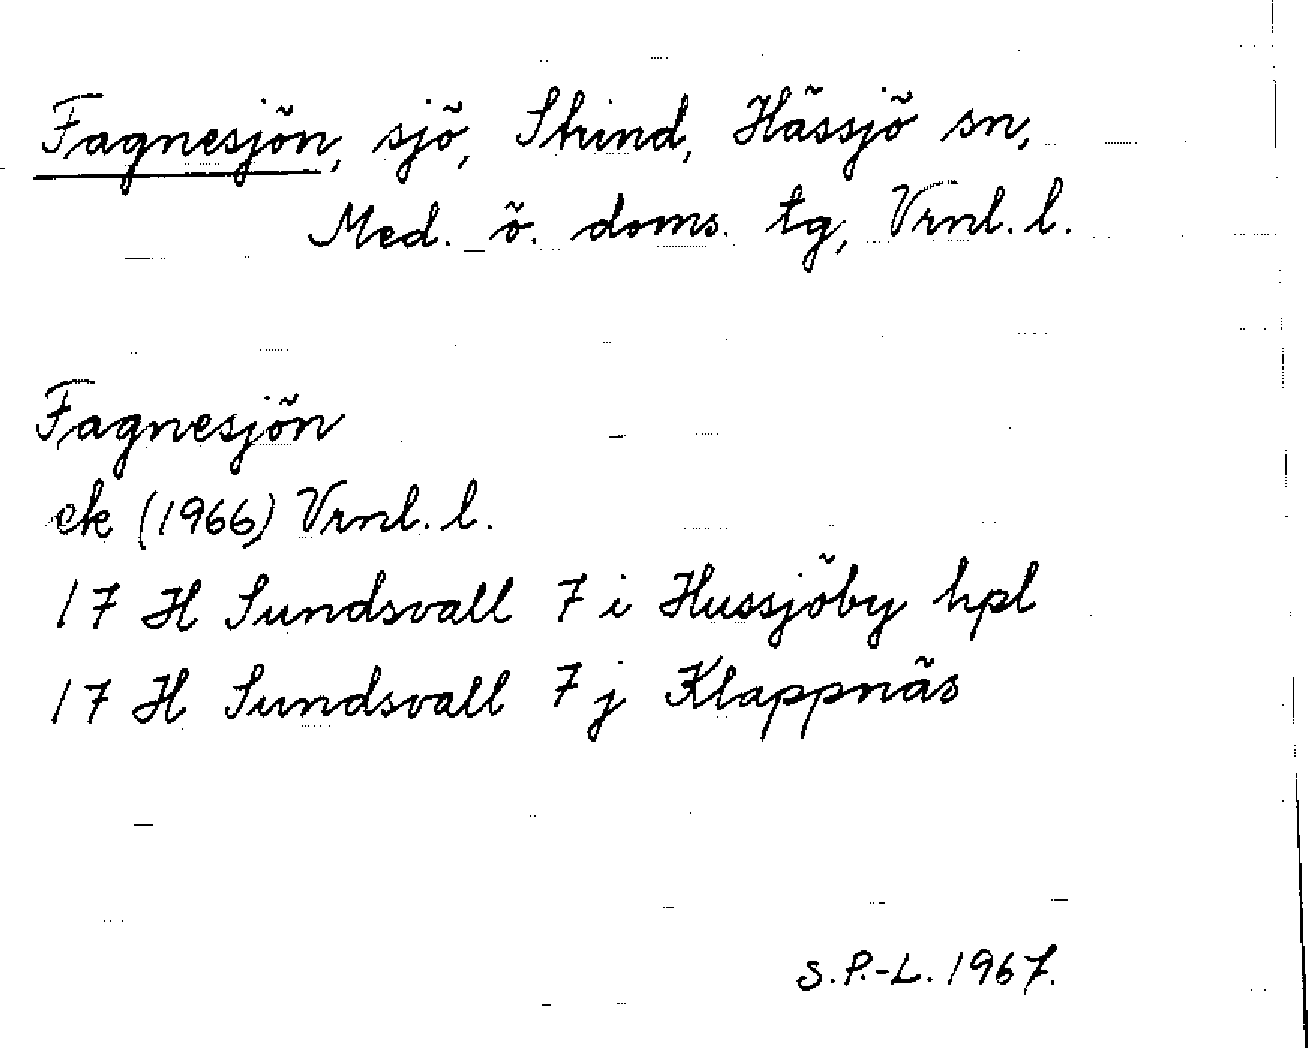 Fagnesjön, sjö, Skind, Hässjö sn,
Med. ö. doms. tg, Vrnl. l.
Fagnesjön
ek (1966) Vrnl. l.
17 H Sundsvall 7 i Hussjöby hpl
17 H Sundsvall 7 j Klappnäs
S. P.-L. 1967.